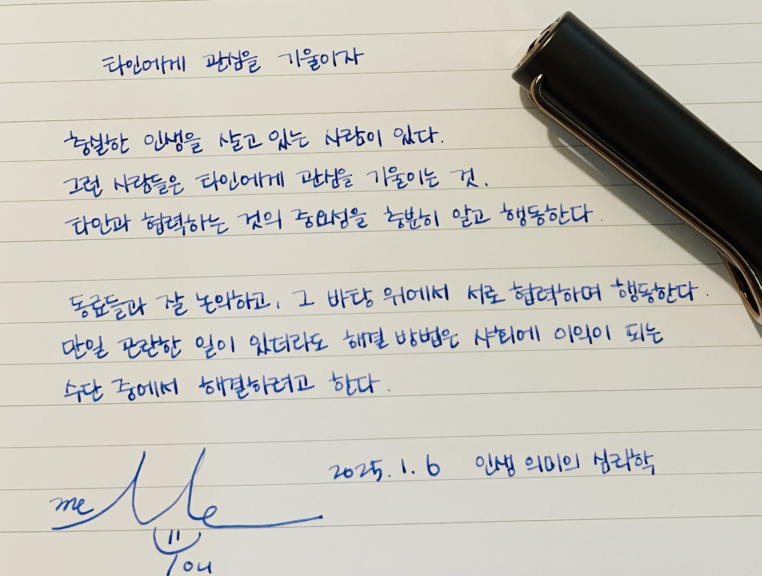 타인에게 관심을 기울이자
충실한 인생을 살고 있는 사람이 있다.
그런 사람들은 타인에게 관심을 기울이는 것.
타인과 협력하는 것의 중요성을 충분히 알고 행동한다.
동료들과 잘 논의하고, 그 바탕 위에서 서로 협력하며 행동한다.
만일 곤란한 일이 있더라도 해결 방법은 사회에 이익이 되는
수단 중에서 해결하려고 한다.
2025.1.6 인생 의미의 심리학
me
You